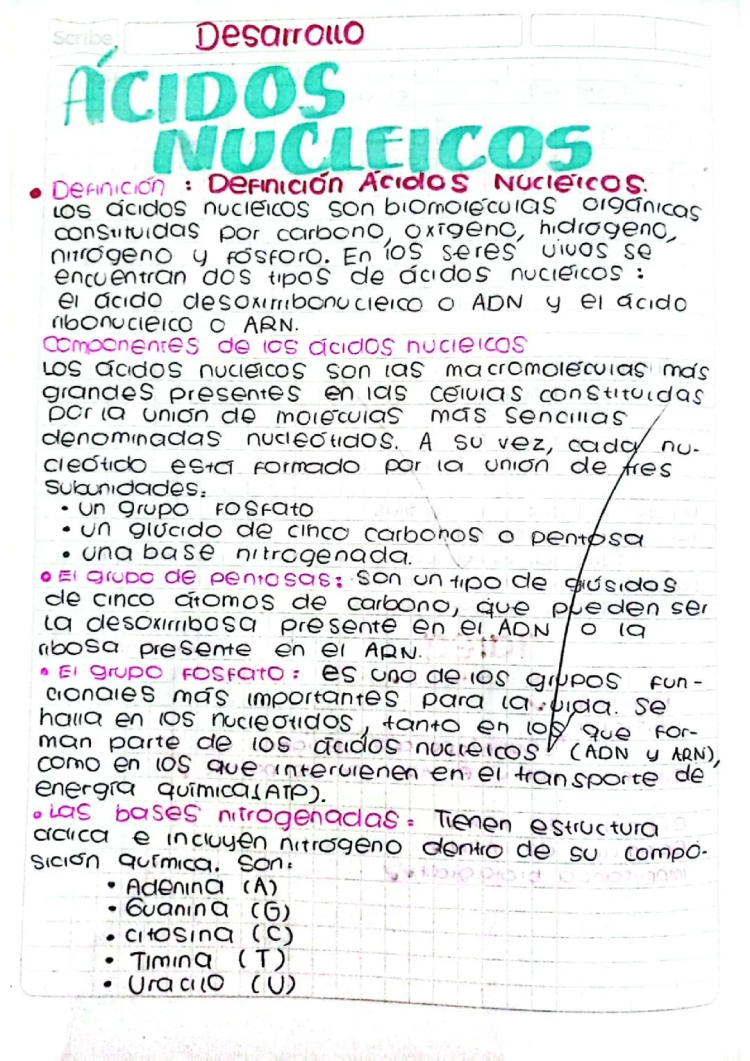 Scribe
Desarrollo
ÁCIDOS
NUCLEICOS
• Definición : Definición Ácidos Nucleicos.
Los ácidos nucléicos son biomoléculas orgánicas
constituidas por carbono, oxígeno, hidrógeno,
nitrógeno y fósforo. En los seres vivos se
encuentran dos tipos de ácidos nucléicos :
el ácido desoxirribonucleico o ADN y el ácido
ribonucleico o ARN.
Componentes de los ácidos nucleicos
Los ácidos nucléicos son las macromoléculas más
grandes presentes en las células constituidas
por la unión de moléculas más sencillas
denominadas nucleótidos. A su vez, cada nu-
cleótido está formado por la unión de tres
subunidades:
• un grupo fosfato
• un glúcido de cinco carbonos o pentosa
• una base nitrogenada.
• El grupo de pentosas: Son un tipo de glúsidos
de cinco átomos de carbono, que pueden ser
la desoxirribosa presente en el ADN o la
ribosa presente en el ARN.
• El grupo fosfato: es uno de los grupos fun-
cionales más importantes para la vida. Se
halla en los nucleótidos, tanto en los que for-
man parte de los ácidos nucleicos (ADN y ARN),
como en los que intervienen en el transporte de
energía química(ATP).
• Las bases nitrogenadas: Tienen estructura
cíclica e incluyen nitrógeno dentro de su compo-
sición química. Son:
• Adenina (A)
• Guanina (G)
• citosina (C)
• Timina (T)
• Uracilo (U)